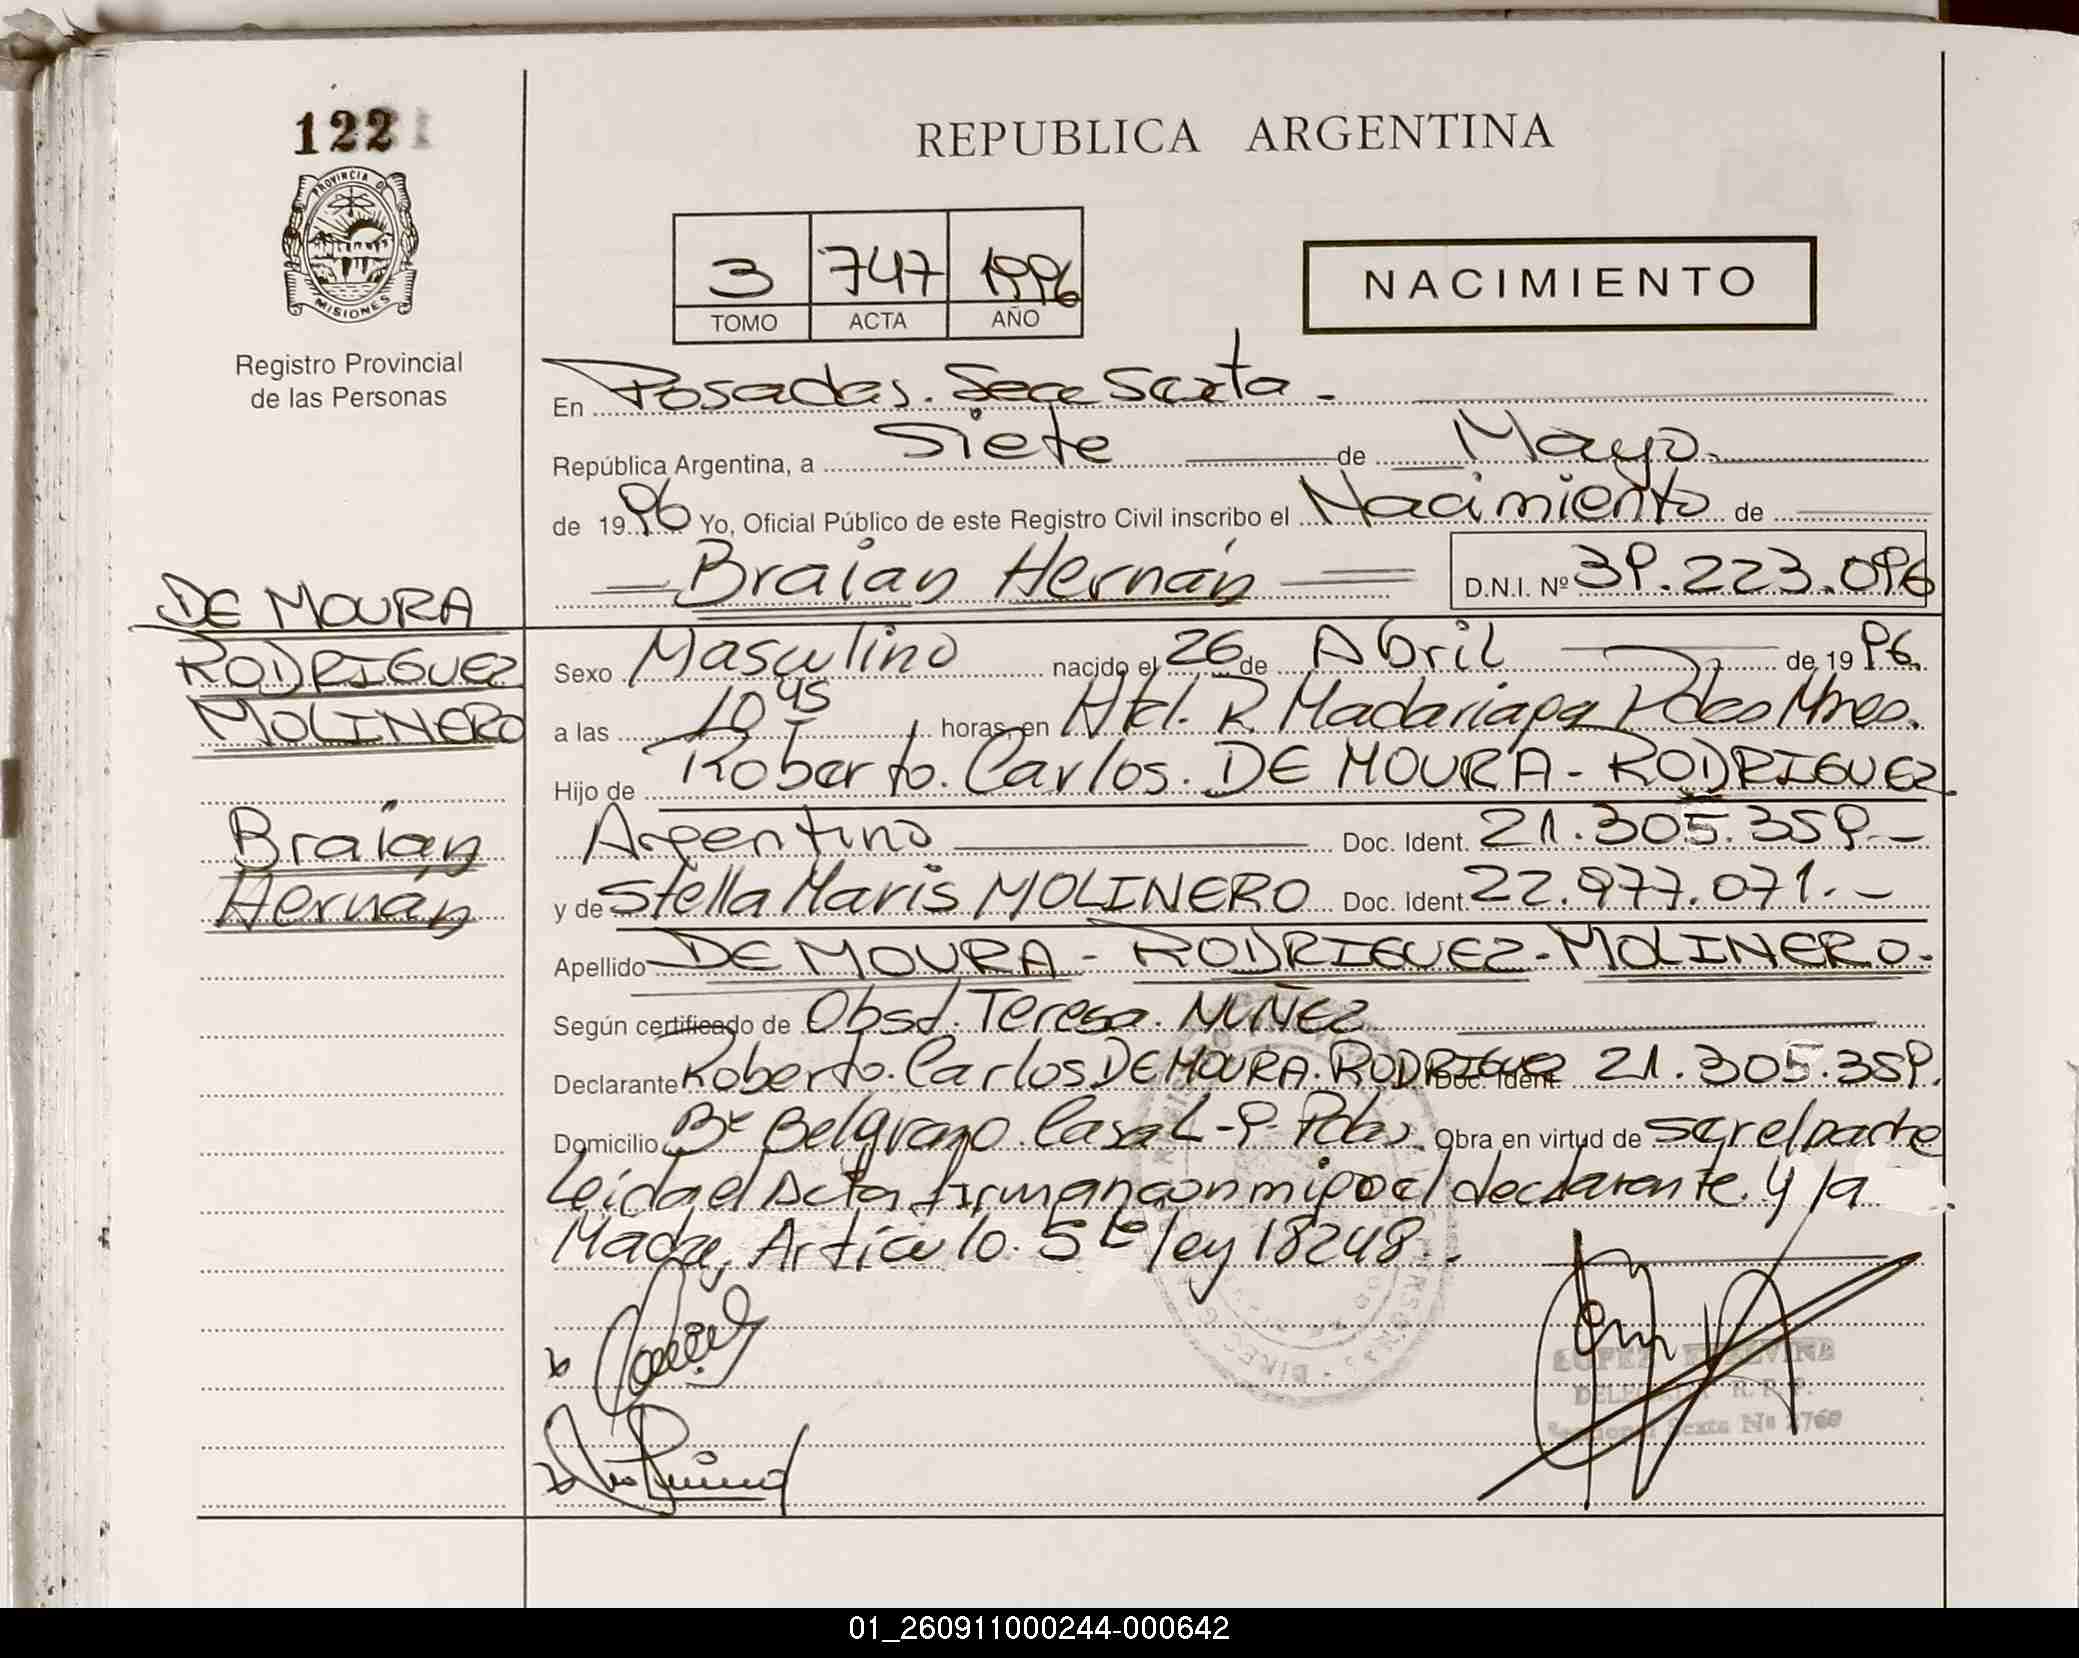 122
PROVINCIA DE
MISIONES
Registro Provincial
de las Personas
REPUBLICA ARGENTINA
3 747 1996
TOMO ACTA AÑO
NACIMIENTO
En Posadas. Secc Sexta.
República Argentina, a Siete de Mayo
de 1996 Yo, Oficial Público de este Registro Civil inscribo el Nacimiento de
Braian Hernán D.N.I. Nº 39.223.096
DE MOURA
RODRIGUEZ
MOLINERO
Braian
Hernán
Sexo Masculino nacido el 26 de Abril de 1996.
a las 10 45 horas en Htal. R. Madariaga Pdas Mnes.
Hijo de Roberto. Carlos. DE MOURA - RODRIGUEZ
Argentino Doc. Ident. 21.305.359.-
y de Stella Maris MOLINERO Doc. Ident. 22.977.071.-
Apellido DE MOURA - RODRIGUEZ - MOLINERO.
Según certificado de Obst. Teresa. NUÑEZ
Declarante Roberto. Carlos DE MOURA. RODRIGUEZ Doc. Ident. 21.305.359.
Domicilio Bº Belgrano Casa L-9- Pdas. Obra en virtud de ser el padre
Leida el Acta firman conmigo el declarante y la
Madre, Articulo. 5 te ley 18248.
LOPEZ ETELVINA
DELEGADA R. P. P.
Seccional Sexta Nº 2760
01_260911000244-000642